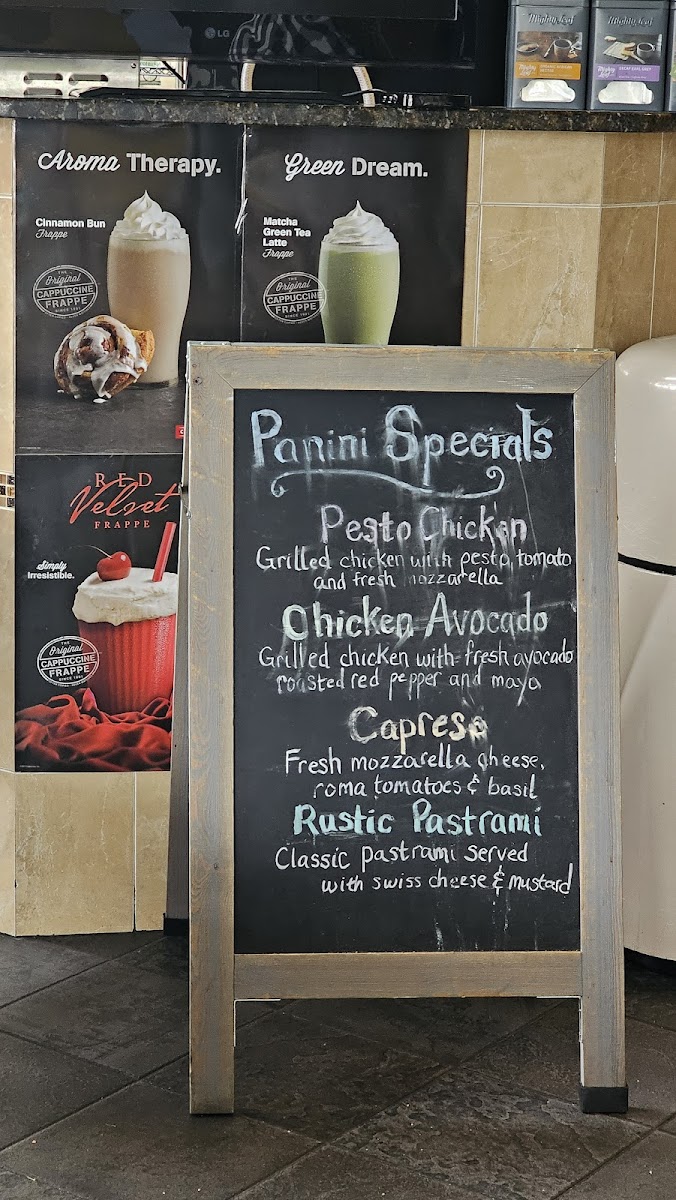 LG
Mighty Leaf
Mighty Leaf
Aroma Therapy.
Cinnamon Bun
Frappe
THE
Original
CAPPUCCINE
FRAPPE
SINCE 1991
Green Dream.
Matcha
Green Tea
Latte
Frappe
THE
Original
CAPPUCCINE
FRAPPE
SINCE 1991
RED
Velvet
FRAPPE
Simply
Irresistible.
THE
Original
CAPPUCCINE
FRAPPE
SINCE 1991
Panini Specials
Pesto Chicken
Grilled chicken with pesto, tomato
and fresh mozzarella
Chicken Avocado
Grilled chicken with fresh avocado
roasted red pepper and mayo
Caprese
Fresh mozzarella cheese,
roma tomatoes & basil
Rustic Pastrami
Classic pastrami served
with swiss cheese & mustard